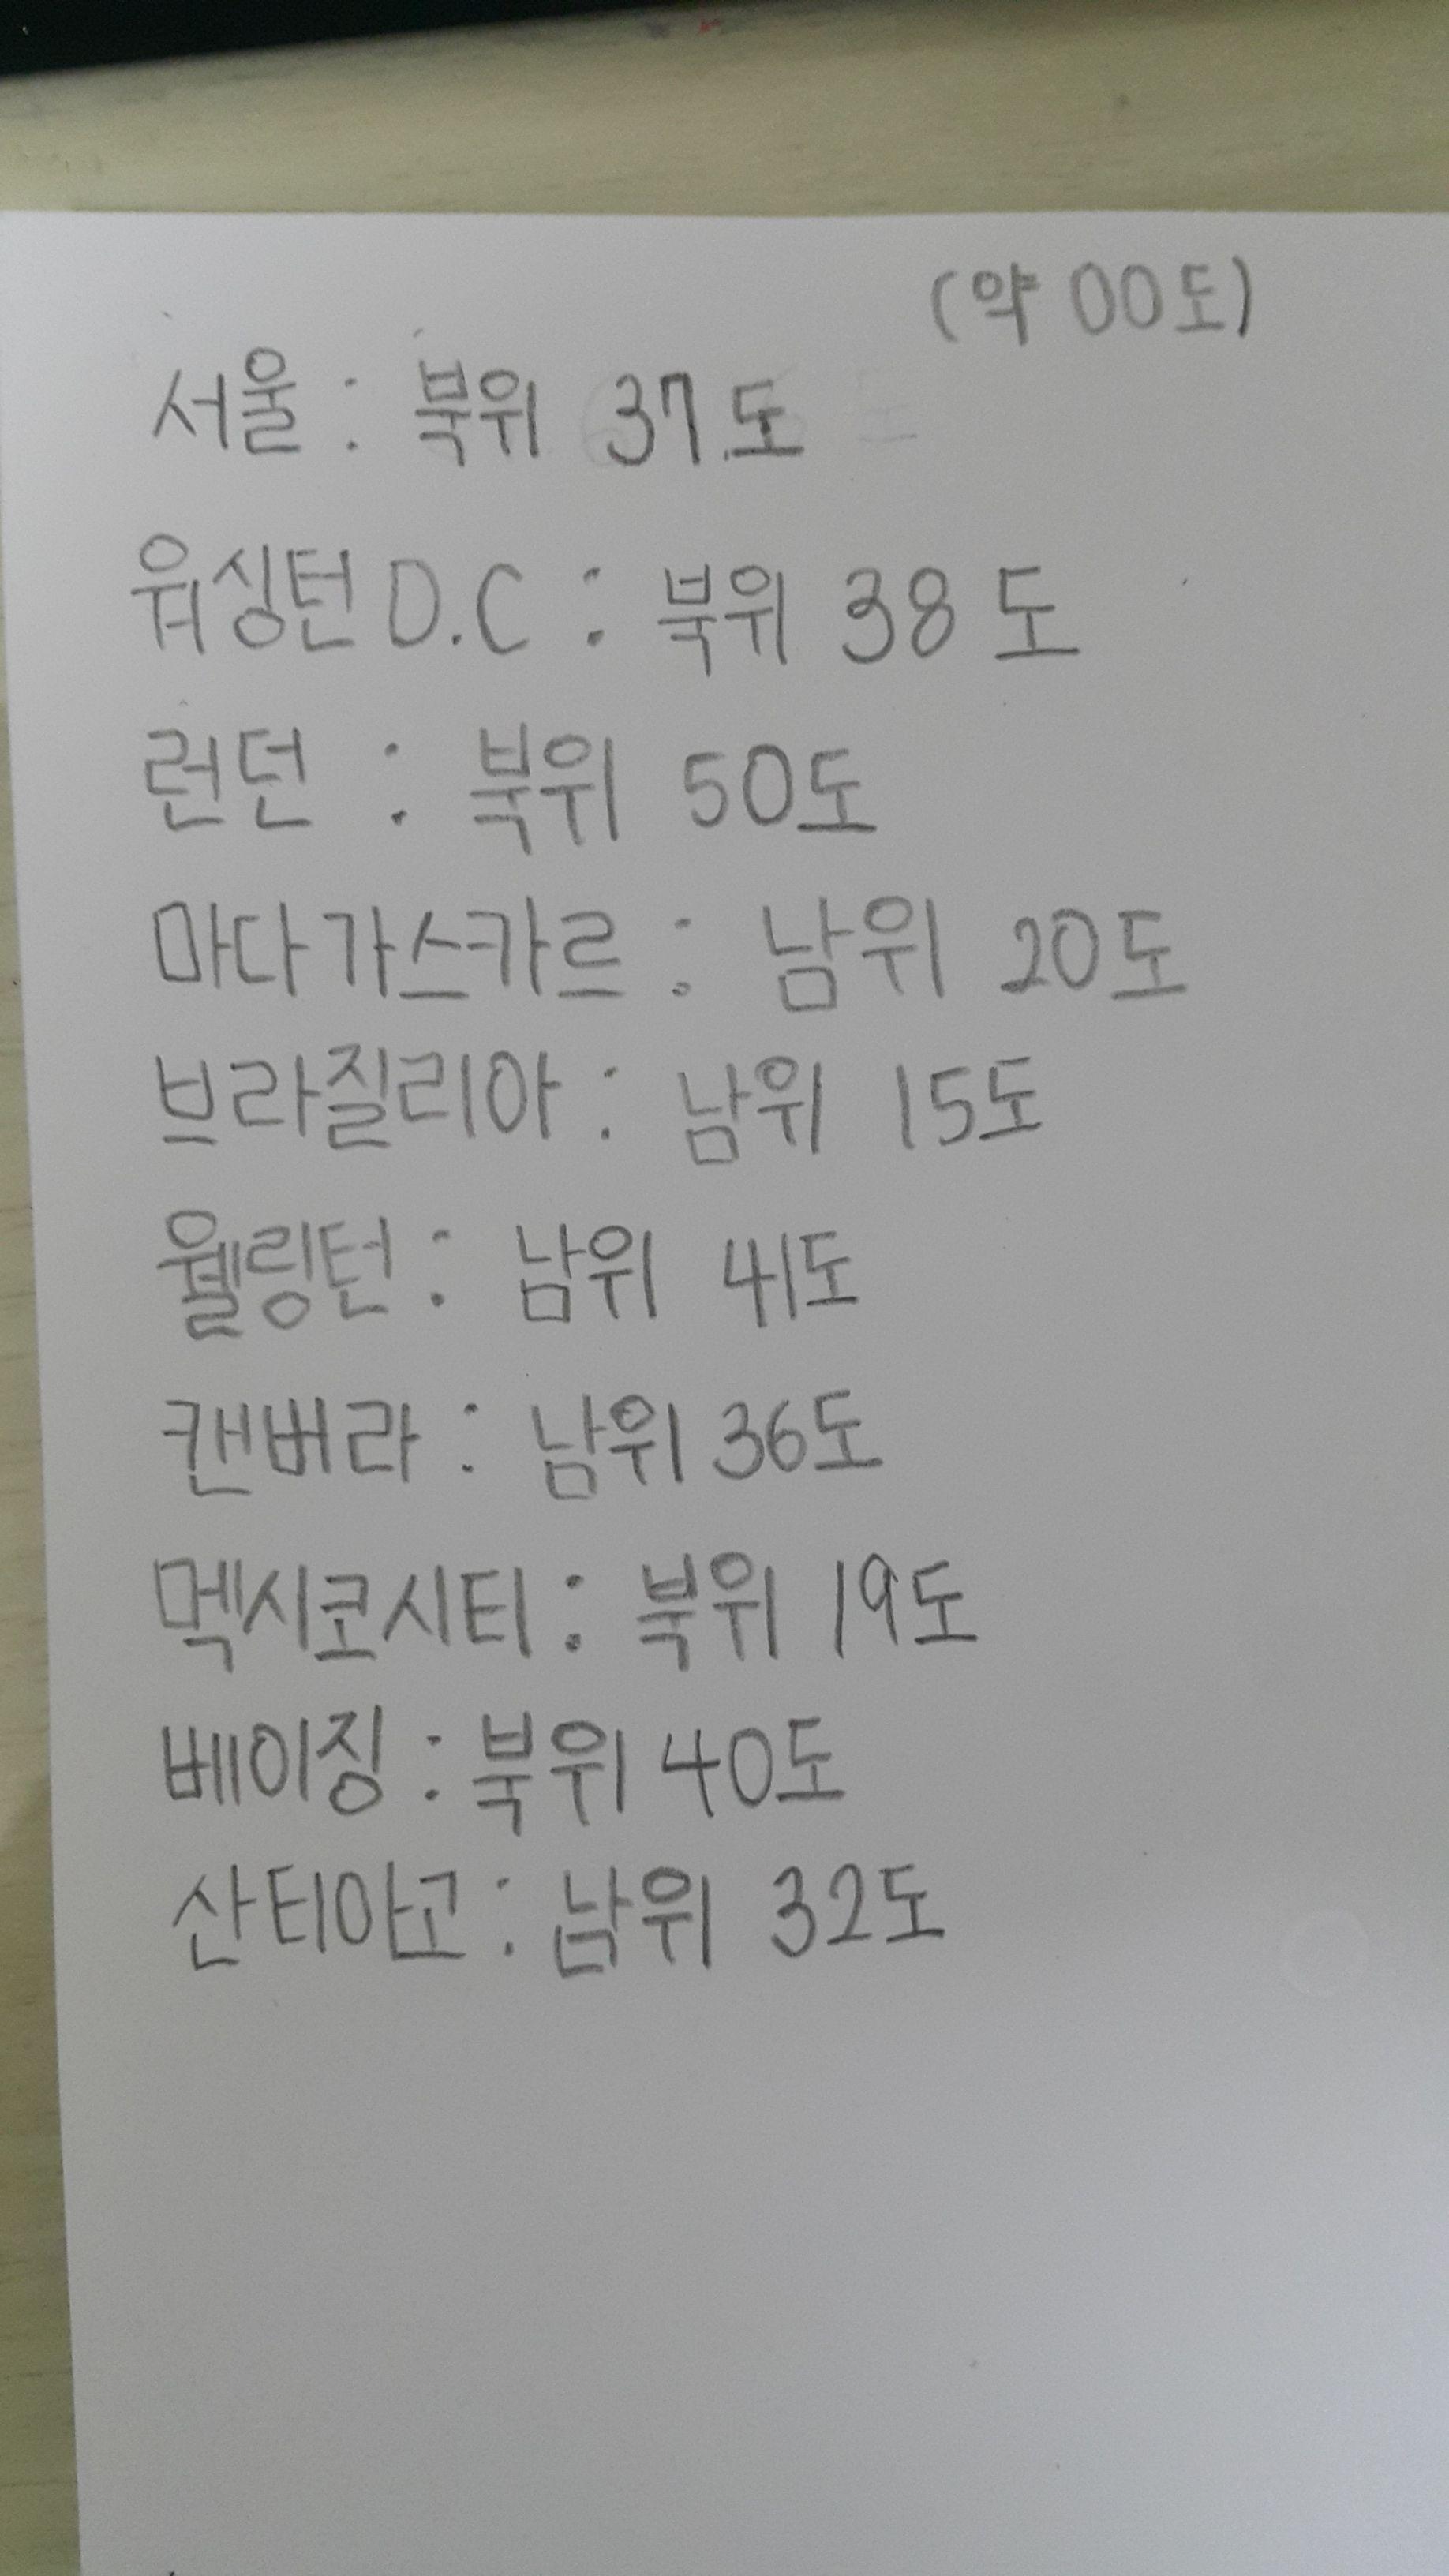 (약 00도)
서울 : 북위 37도
워싱턴 D.C : 북위 38도
런던 : 북위 50도
마다가스카르 : 남위 20도
브라질리아 : 남위 15도
웰링턴 : 남위 41도
캔버라 : 남위 36도
멕시코시티 : 북위 19도
베이징 : 북위 40도
산티아고 : 남위 32도